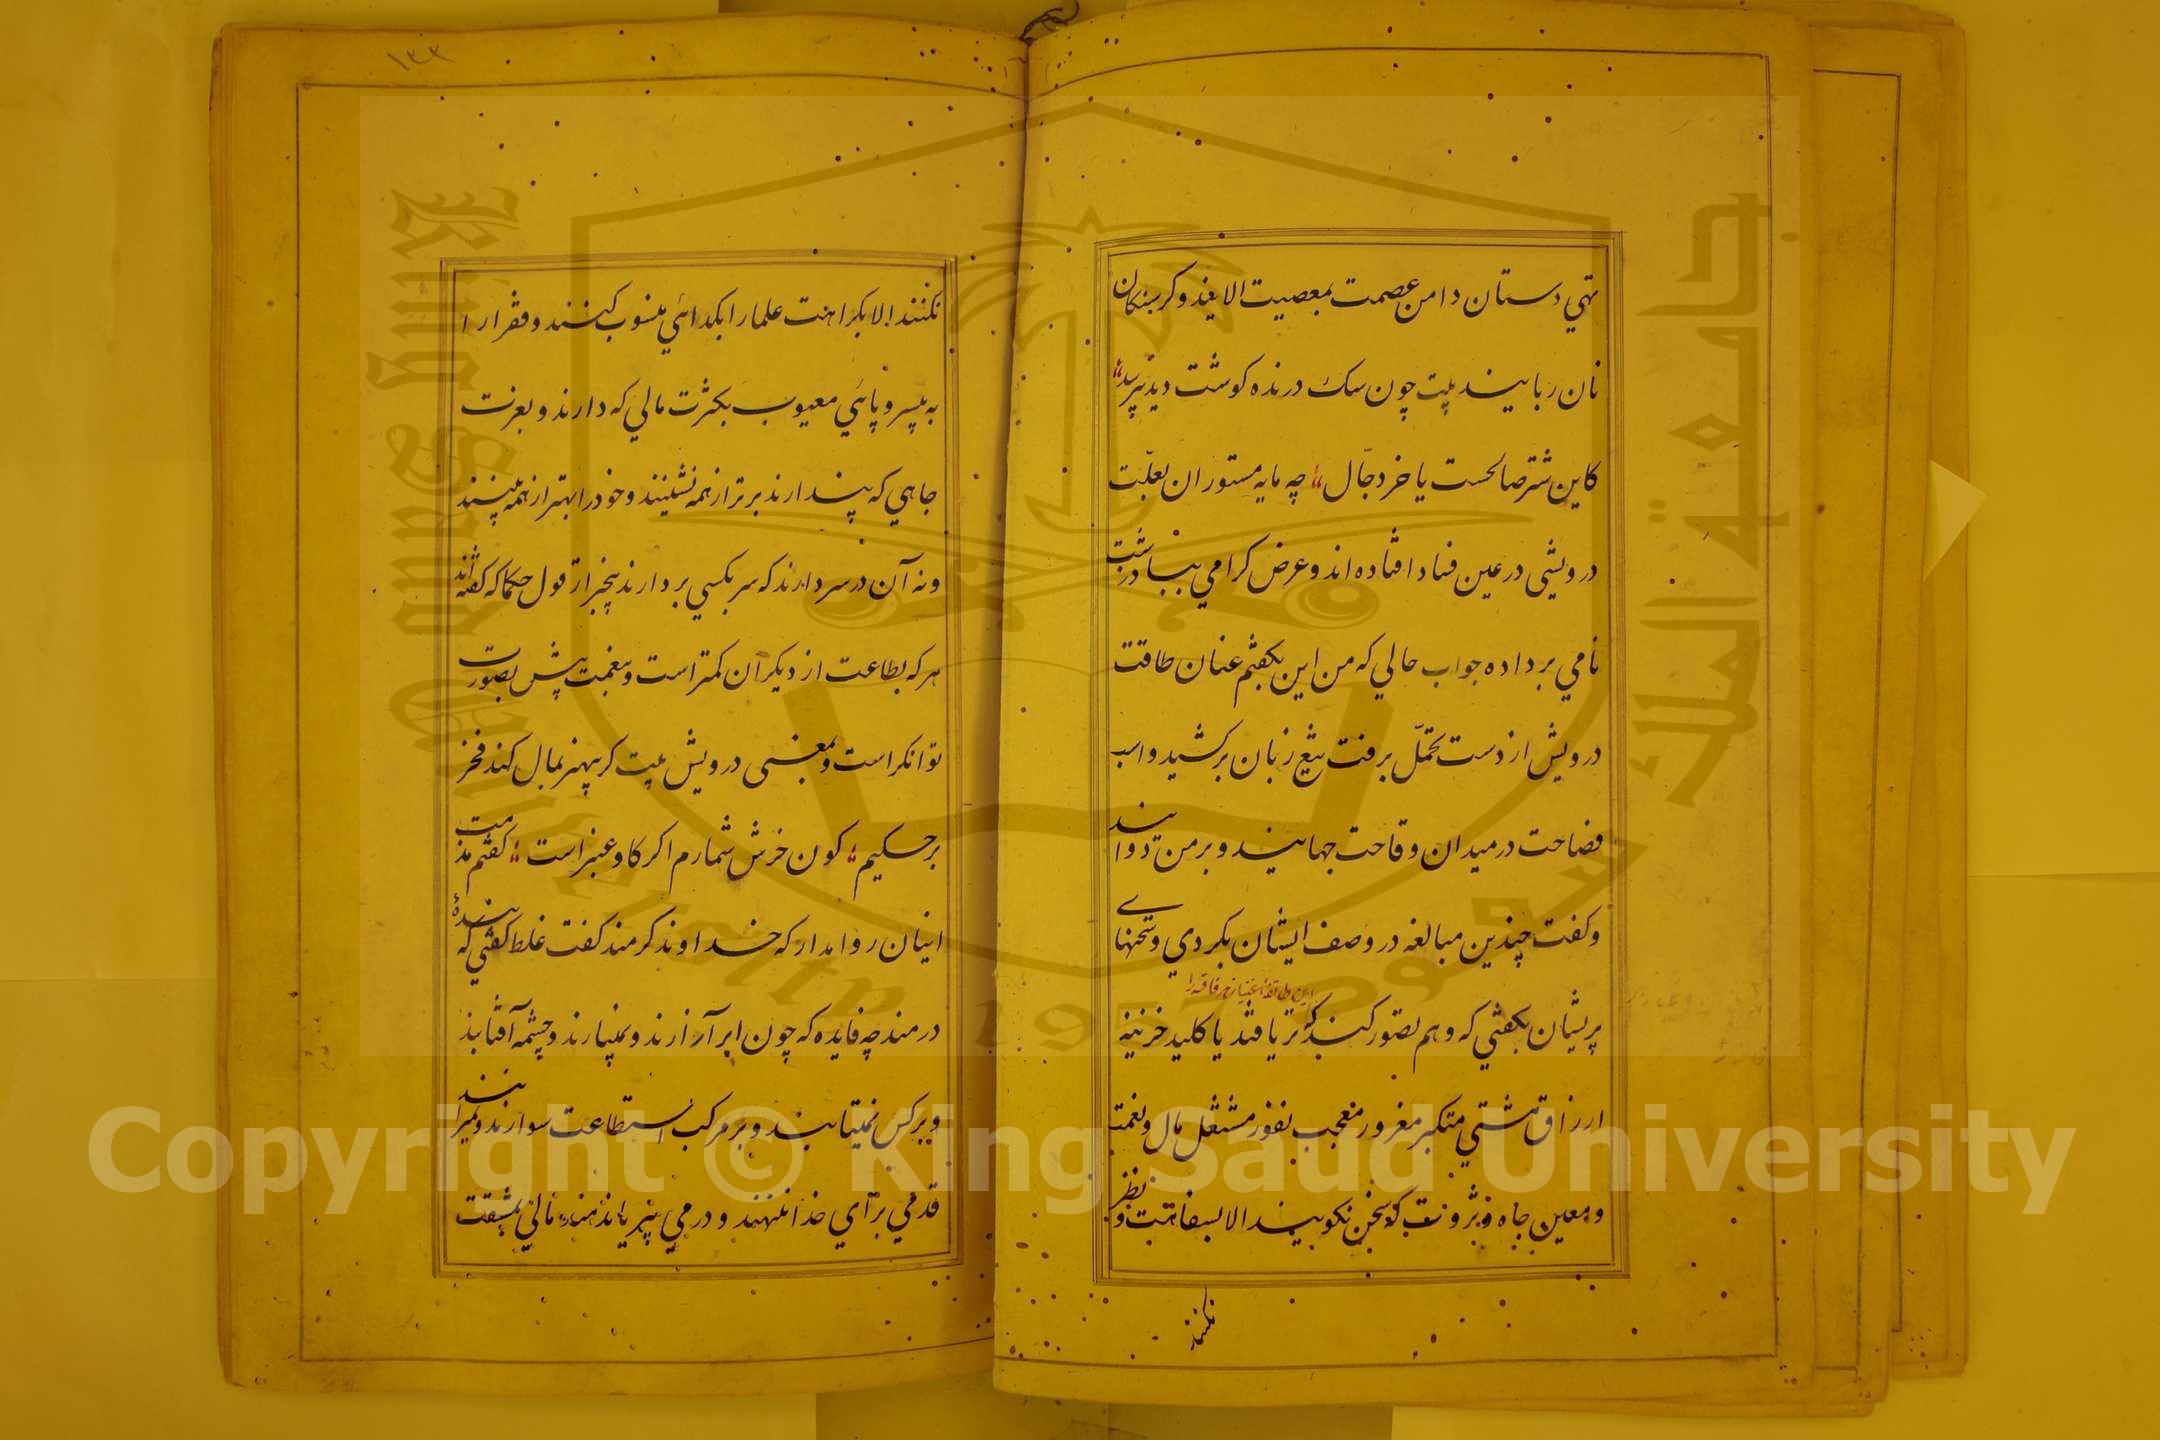 تهي دستان دامن عصمت بمعصيت الايند و كرسنكان
نان ربايند بيت چون سك درنده كوشت ديد نپرسد
كاين شتر صالحست يا خر دجّال چه مايه مستوران بعلّت
درويشي در عين فساد افتاده اند و عرض كرامي بباد زشت
نامي برداده جواب حالي كه من اين بكفتم عنان طاقت
درويش از دست تحمّل برفت تيغ زبان بركشيد و اسب
فصاحت در ميدان وقاحت جهانيد و بر من دوانيد
و كفت چندين مبالغه در وصف ايشان بكردي و سخنهاي
اين طائفه اغنيا زهر فاقه را
پريشان بكفتي كه وهم تصور كند كه ترياقند يا كليد خزينه
ارزاق مشتي متكبر مغرور معجب نفور مشتغل مال و نعمت
و معين جاه و ثروت كه سخن نكويند الا بسفاهت و نظر
نكنند
١٣٣
نكنند الا بكراهت علما را بكدائي منسوب كنند و فقرا را
به بيسر و پائي معيوب بكثرت مالي كه دارند و بعزت
جاهي كه پندارند برتر از همه نشينند و خود را بهتر از همه بينند
و نه آن در سر دارند كه سر بكسي بردارند بيخبر از قول حكما كه كفته اند
هركه بطاعت از ديكران كمتر است و بنعمت بيش بصورت
توانكر است و بمعني درويش بيت كر بيهنر بمال كند فخر
بر حكيم كون خرش شمارم اكر كاو عنبر است كفتم مذمت
اينان روا مدار كه خداوند كرمند كفت غلط كفتي كه بنده
درمند چه فايده كه چون ابر آزارند و نميبارند و چشمه آفتابند
و بر كس نميتابند و بر مركب استطاعت سوارند و نميرانند
قدمي براي خدا ننهند و درمي بي من و اذي ندهند مالي بمشقت
King Saud University
جامعة الملك سعود
1957
Copyright © King Saud University